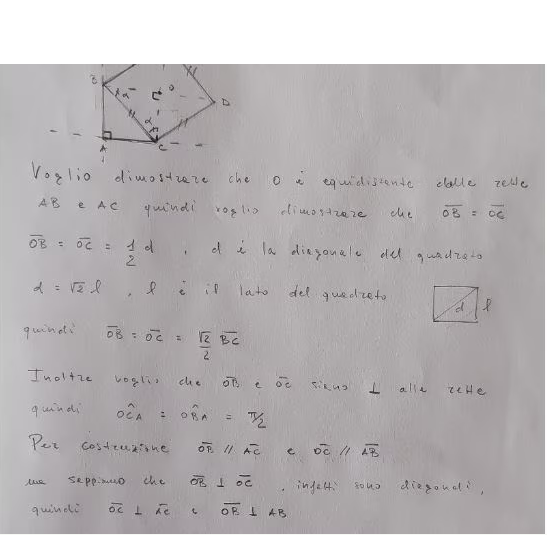 B
α
O
D
α
A
C
Voglio dimostrare che O è equidistante dalle rette
AB e AC quindi voglio dimostrare che O̅B̅ = O̅C̅
O̅B̅ = O̅C̅ = 1/2 d , d è la diagonale del quadrato
d = √2 l , l è il lato del quadrato
d l
quindi O̅B̅ = O̅C̅ = √2/2 B̅C̅
Inoltre voglio che O̅B̅ e O̅C̅ siano ⊥ alle rette
quindi OĈA = OB̂A = π/2
Per costruzione O̅B̅ // A̅C̅ e O̅C̅ // A̅B̅
ma sappiamo che O̅B̅ ⊥ O̅C̅ , infatti sono diagonali,
quindi O̅C̅ ⊥ A̅C̅ e O̅B̅ ⊥ AB